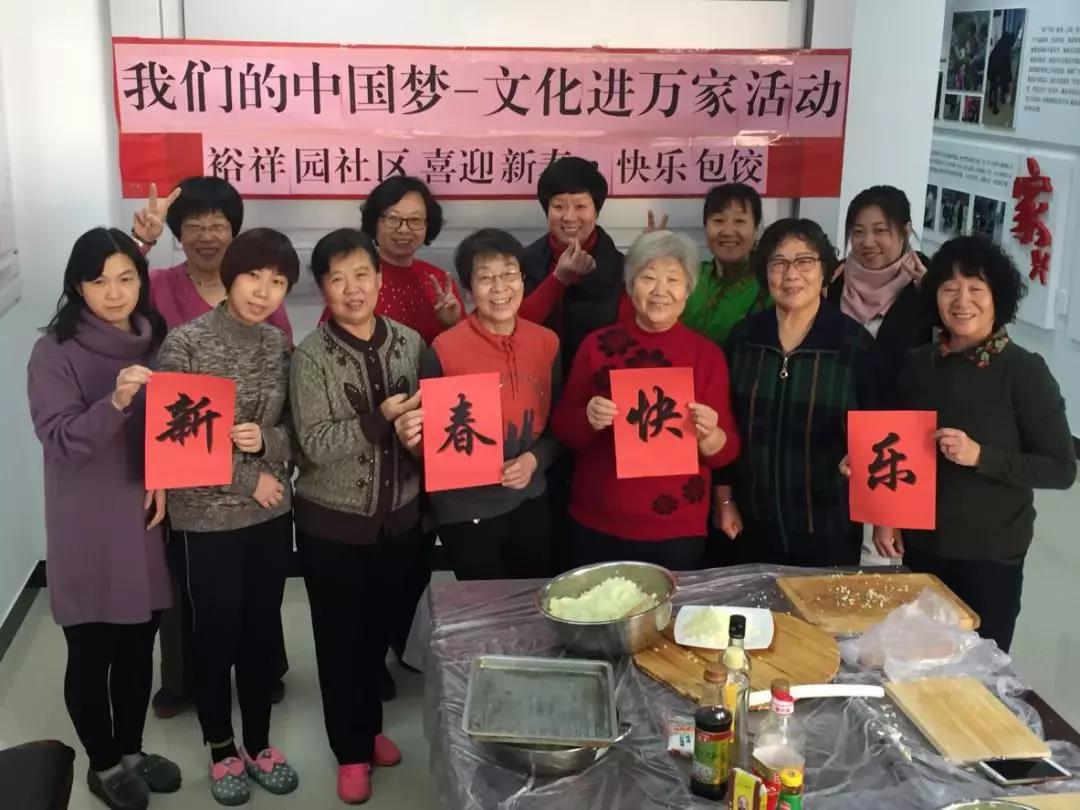 我们的中国梦-文化进万家活动
裕祥园社区喜迎新春 快乐包饺
新 春 快 乐
家